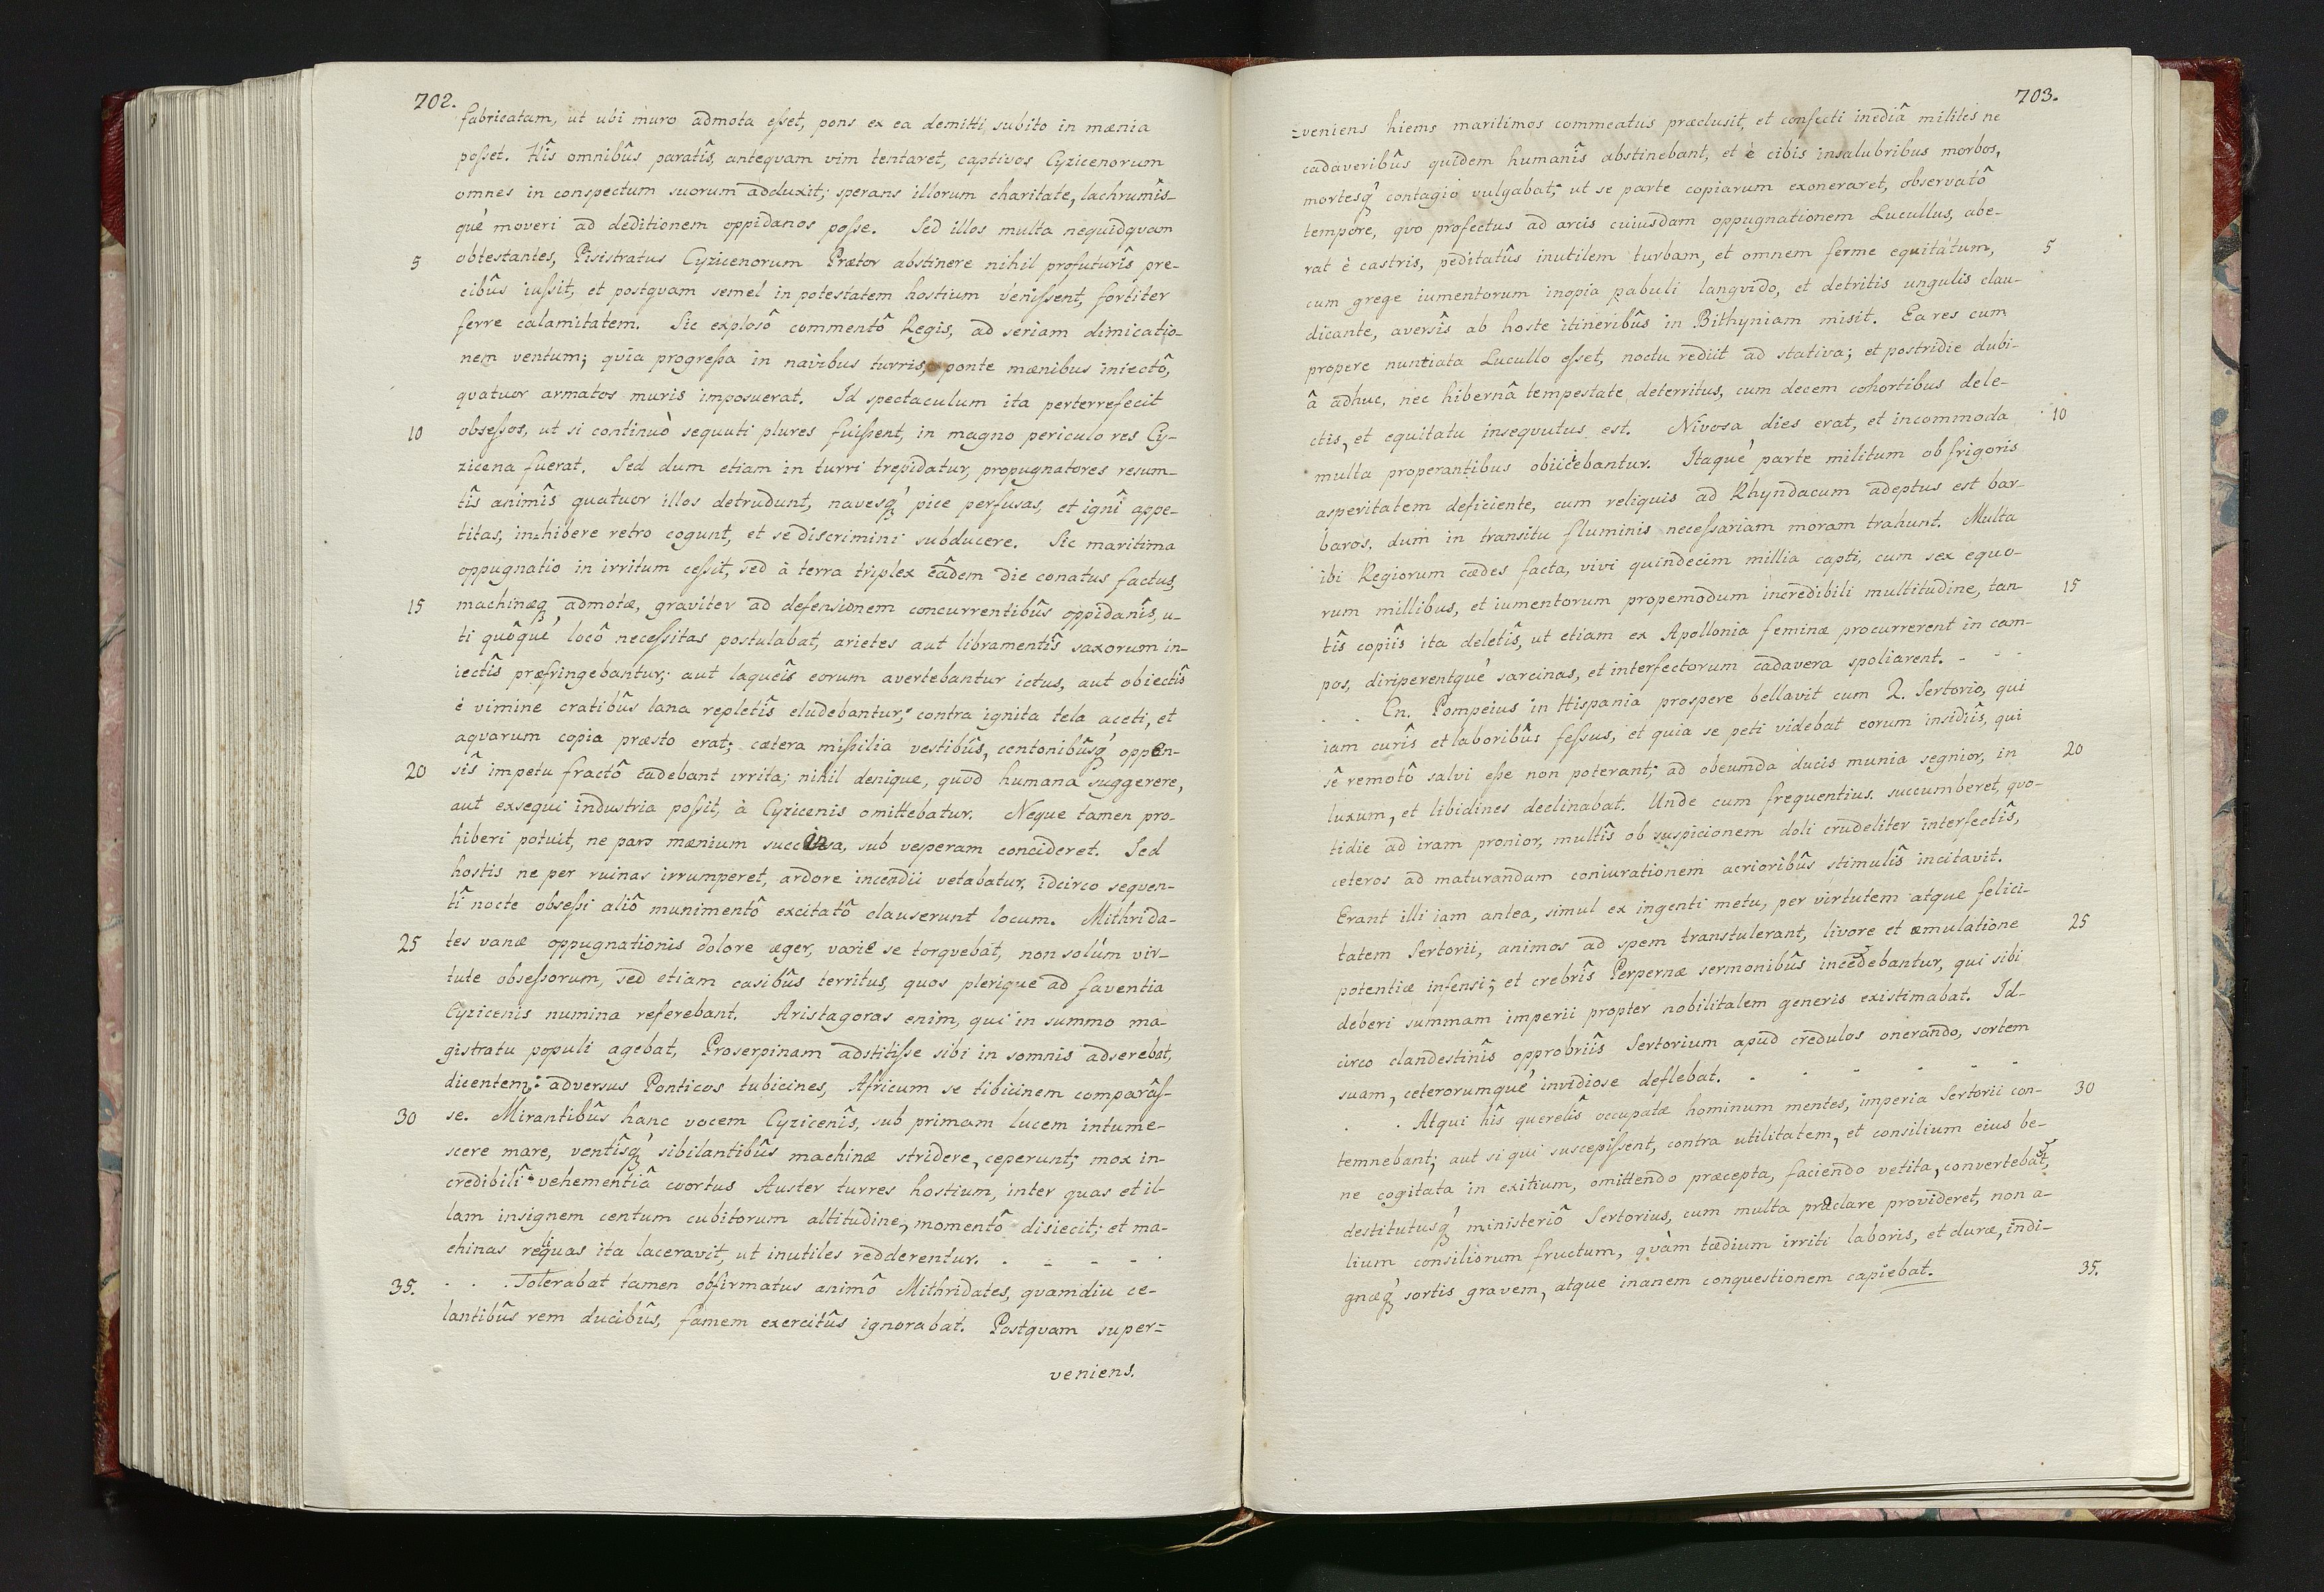 702.
fabricatam, ut ubi muro admota eſset, pons ex ea demitti subito in mænia
poſset. Hîs omnibûs paratîs, antequam vim tentaret, captivos Cyzicenorum
omnes in conspectum suorum adduxit; sperans illorum charitate, lachrumîs-
què moveri ad deditionem oppidanos poſse. Sed illos multa nequidquam
5 obtestantes, Pisistratus Cyzicenorum Prætor abstinere nihil profuturîs pre-
cibûs iuſsit, et postquam semel in potestatem hostium veniſsent, fortiter
ferre calamitatem. Sic explosô commentô Regis, ad seriam dimicatio-
nem ventum; quia progreſsa in navibus turris, ponte mænibus iniectô,
quatuor armatos muris imposuerat. Id spectaculum ita perterrefecit
10 obseſsos, ut si continuò sequuti plures fuiſsent, in magno periculo res Cy-
zicena fuerat. Sed dum etiam in turri trepidatur, propugnatores resum-
tîs animîs quatuor illos detrudunt, navesq' pice perfusas, et ignî appe-
titas, inhibere retro cogunt, et se discrimini subducere. Sic maritima
oppugnatio in irritum ceſsit, sed à terra triplex eâdem die conatus factus,
15 machinæq admotæ, graviter ad defensionem concurrentibûs oppidanîs, u-
ti quôquè locô neceſsitas postulabat, arietes aut libramentîs saxorum in-
iectîs præfringebantur; aut laqueîs eorum avertebantur ictus, aut obiectîs
è vimine cratibûs lana repletîs eludebantur; contra ignita tela aceti, et
aquarum copia præsto erat; cætera miſsilia vestibûs, centonibûsq' oppen-
20 sîs impetu fractô cadebant irrita; nihil denique, quod humana suggerere,
aut exsequi industria poſsit, à Cyzicenis omittebatur. Neque tamen pro-
hiberi potuit, ne pars mænium succina, sub vesperam concideret. Sed
hostis ne per ruinas irrumperet, ardore incendii vetabatur, idcirco sequen-
tî nocte obseſsi aliô munimentô excitatô clauserunt locum. Mithrida-
25 tes vanæ oppugnationis dolore æger, varie se torquebat, non solùm vir-
tute obseſsorum, sed etiam casibûs territus, quos plerique ad faventia
Cyzicenis numina referebant. Aristagoras enim, qui in summo ma-
gistratu populi agebat, Proserpinam adstitiſse sibi in somnis adserebat,
dicentem: adversus Ponticos tubicines, Africum se tibicinem comparâſ-
30 se. Mirantibûs hanc vocem Cyzicenîs, sub primam lucem intume-
scere mare, ventîsq' sibilantibûs machinæ stridere, ceperunt; mox in-
credibilî vehementiâ coortus Auster turres hostium, inter quas et il-
lam insignem centum cubitorum altitudine, momentô disiecit; et ma-
chinas reliquas ita laceravit, ut inutiles redderentur. . - - - .
35. . . . Tolerabat tamen obfirmatus animô Mithridates, quamdiu ce-
lantibûs rem ducibûs, famem exercitûs ignorabat. Postquam super=
veniens.
703.
=veniens hiems maritimos commeatus præclusit, et confecti inediâ milites ne
cadaveribûs quidem humanîs abstinebant, et è cibis insalubribus morbos,
mortesq' contagio vulgabat; ut se parte copiarum exoneraret, observatô
tempore, quo profectus ad arcis cuiusdam oppugnationem Lucullus, abe-
rat è castris, peditatûs inutilem turbam, et omnem ferme equitatum, 5
cum grege iumentorum inopia pabuli languido, et detritis ungulis clau-
dicante, aversîs ab hoste itineribûs in Bithyniam misit. Ea res cum
propere nuntiata Lucullo eſset, noctu rediit ad stativa; et postridie dubi-
â adhuc, nec hibernâ tempestate deterritus, cum decem cohortibus dele-
ctis, et equitatu insequutus est. Nivosa dies erat, et incommoda 10
multa properantibus obiiciebantur. Itaquè parte militum ob frigoris
asperitatem deficiente, cum reliquis ad Rhyndacum adeptus est bar-
baros, dum in transitu fluminis neceſsariam moram trahunt. Multa
ibi Regiorum cædes facta, vivi quindecim millia capti, cum sex equo-
rum millibus, et iumentorum propemodum incredibili multitudine, tan 15
tîs copiîs ita deletîs, ut etiam ex Apollonia feminæ procurrerent in cam-
pos, diriperentquè sarcinas, et interfectorum cadavera spoliarent. - - -
. . Cn. Pompeius in Hispania prospere bellavit cum Q. Sertorio, qui
iam curîs et laboribûs feſsus, et quia se peti videbat eorum insidiîs, qui
sê remotô salvi eſse non poterant; ad obeunda ducis munia segnior, in 20
luxum, et libidines declinabat. Unde cum frequentius succumberet, quo-
tidie ad iram pronior, multîs ob suspicionem doli crudeliter interfectîs,
ceteros ad maturandam coniurationem acrioribûs stimulîs incitavit.
Erant illi iam antea, simul ex ingenti metu, per virtutem atque felici-
tatem Sertorii, animos ad spem transtulerant, livore et æmulatione 25
potentiæ infensi; et crebrîs Perpernæ sermonibûs incedebantur, qui sibi
deberi summam imperii propter nobilitatem generis existimabat. Id-
circo clandestinîs opprobriîs Sertorium apud credulos onerando, sortem
suam, ceterorumquè invidiose deflebat. - - - - - -
. . Atqui hîs querelîs occupatæ hominum mentes, imperia Sertorii con- 30
temnebant; aut si qui suscepiſsent, contra utilitatem, et consilium eius be-
ne cogitata in exitium, omittendo præcepta, faciendo vetita, convertebat,
destitutusq' ministeriô Sertorius, cum multa præclare provideret, non a-
lium consiliorum fructum, quàm tædium irriti laboris, et duræ, indi-
gnæq' sortis gravem, atque inanem conquestionem capiebat. 35.